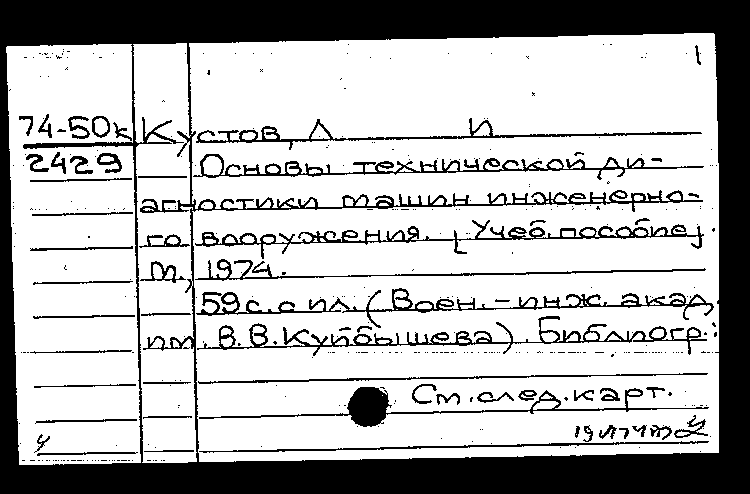 1
74-50к Кустов, Л И
2429 Основы технической ди-
агностики машин инженерно-
го вооружения. [Учеб. пособие].
М., 1974.
59 с. с ил. (Воен.-инж. акад.
им. В. В. Куйбышева). Библиогр.:
См. след. карт.